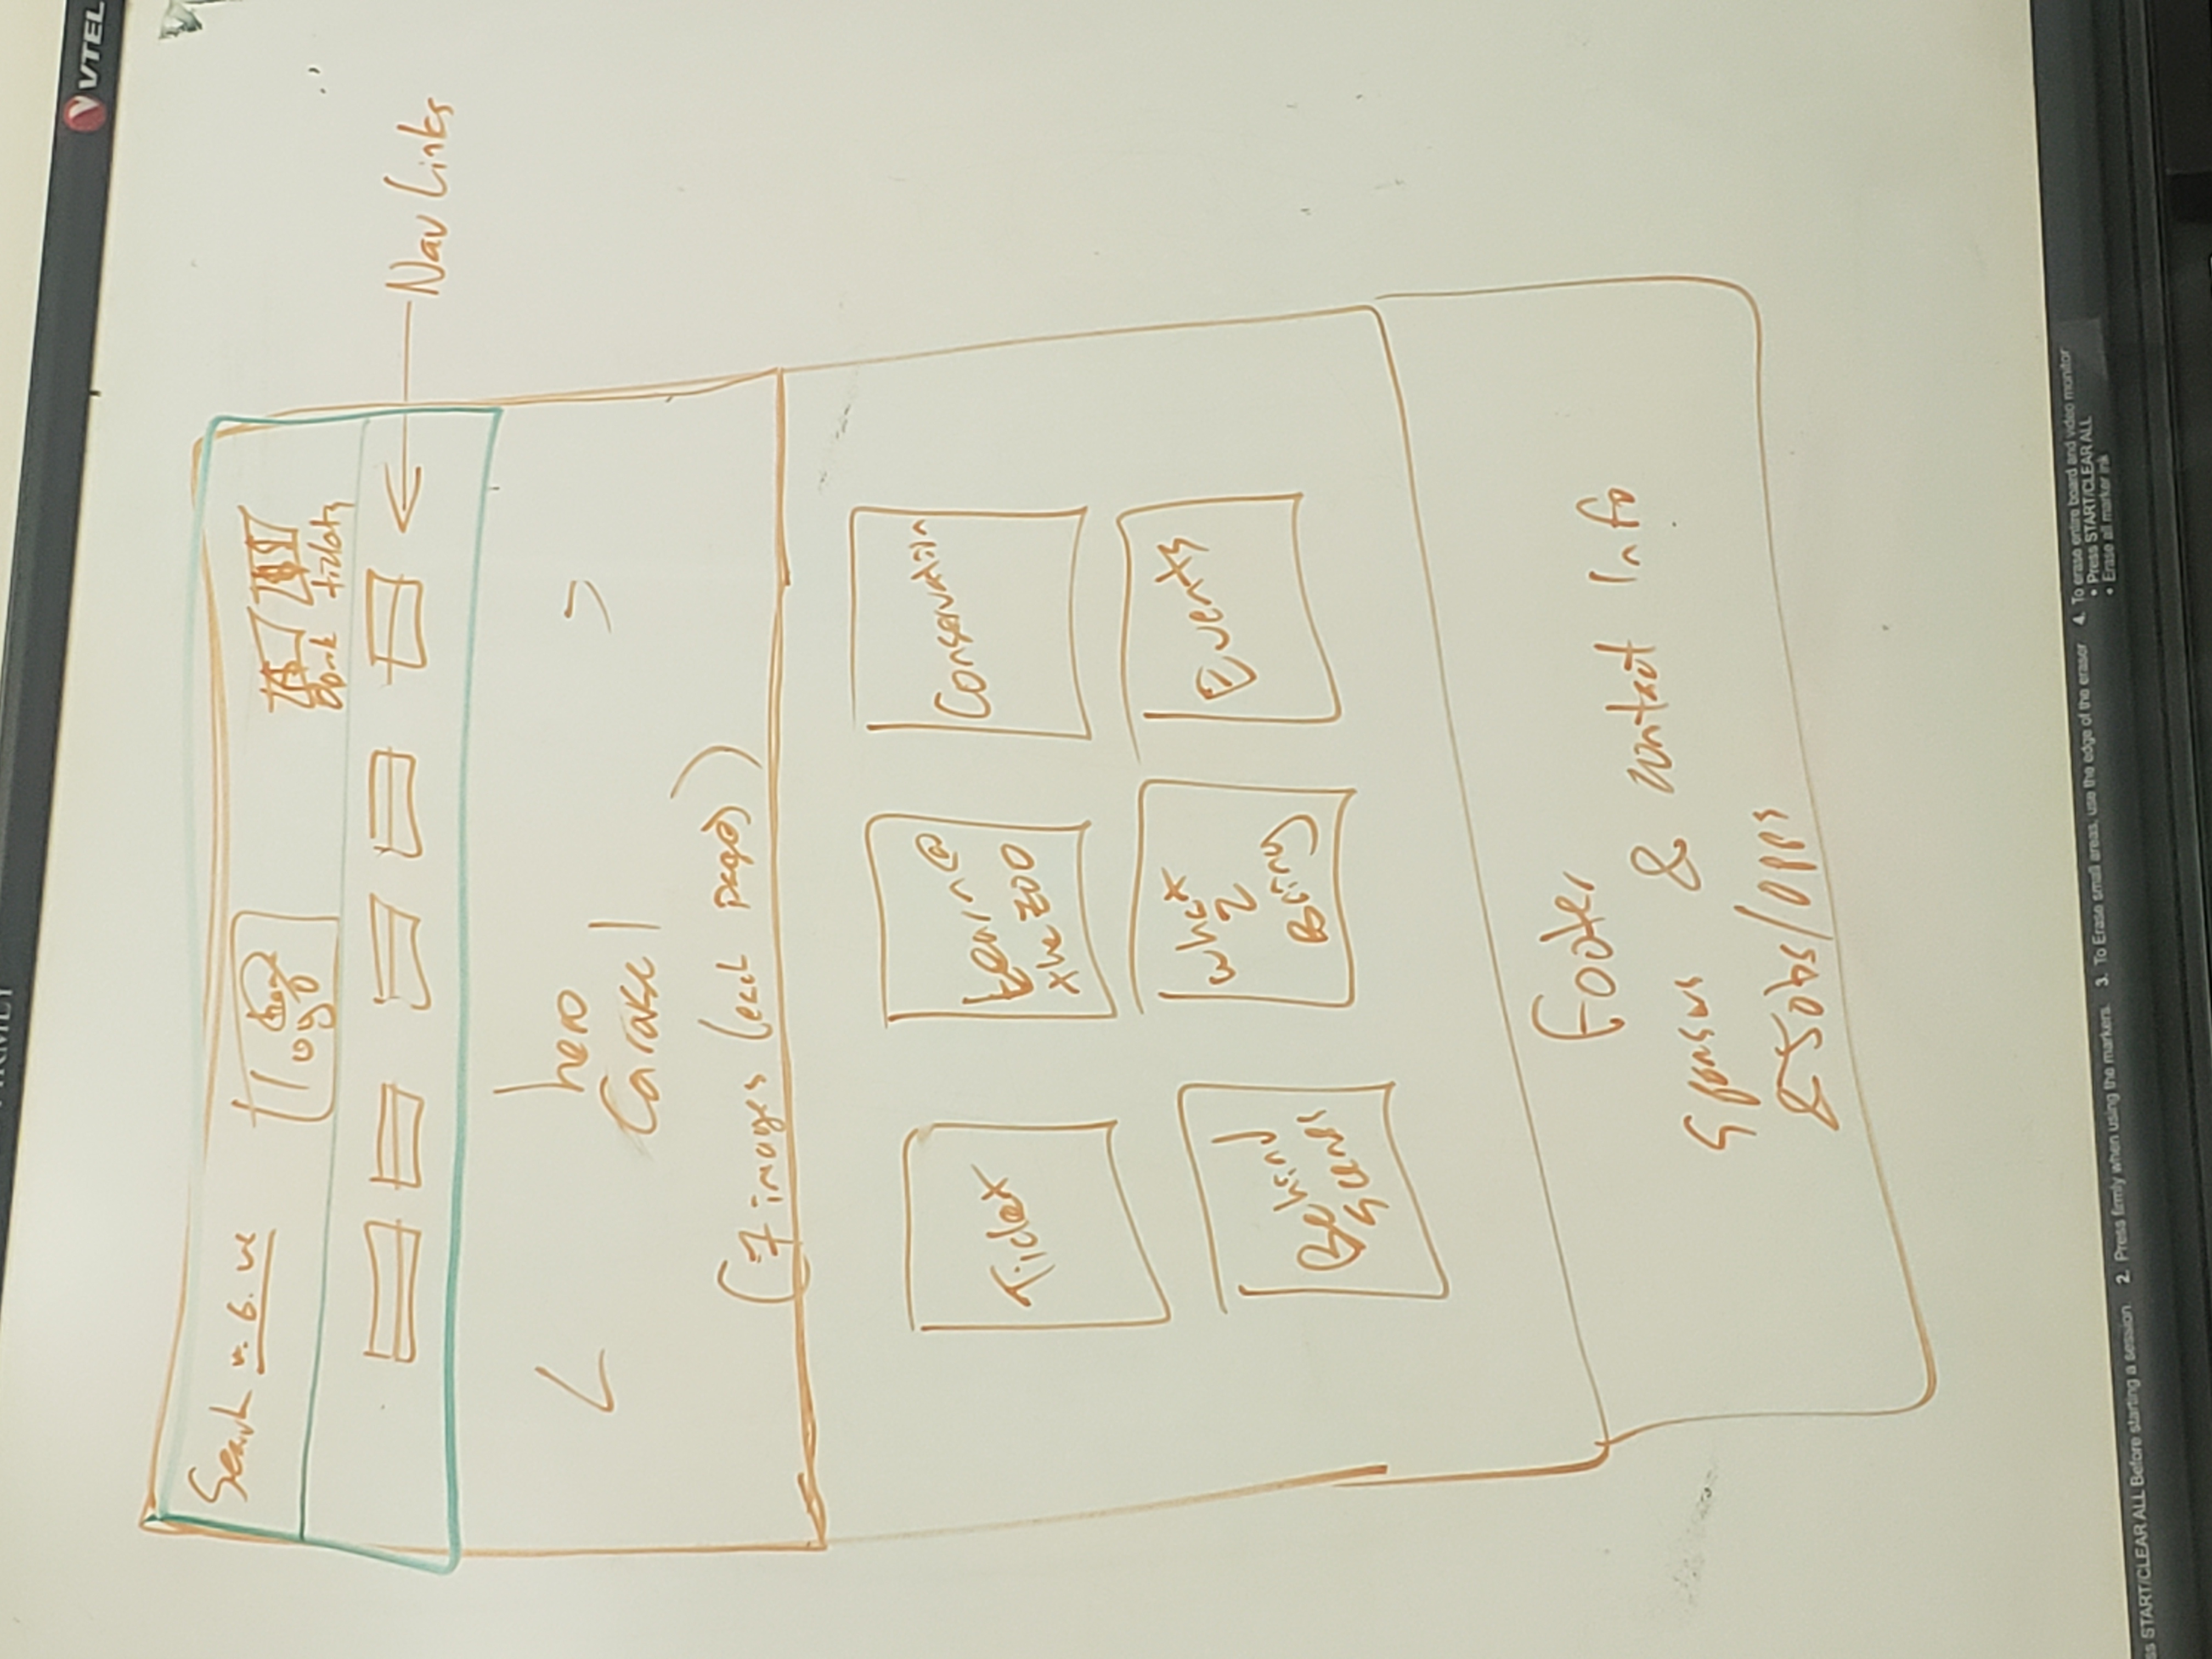 VTEL
Search
logo
Nav Links
hero
Carousel
(7 images (each page))
Ticket
Learn @
the zoo
Conservation
Behind
scenes
what
2
Bring
Events
Footer
Sponsors & contact Info
& Jobs/opps
ss START/CLEAR ALL Before starting a session. 2. Press firmly when using the markers. 3. To Erase small areas, use the edge of the eraser. 4. To erase entire board and video monitor:
• Press START/CLEAR ALL
• Erase all marker ink